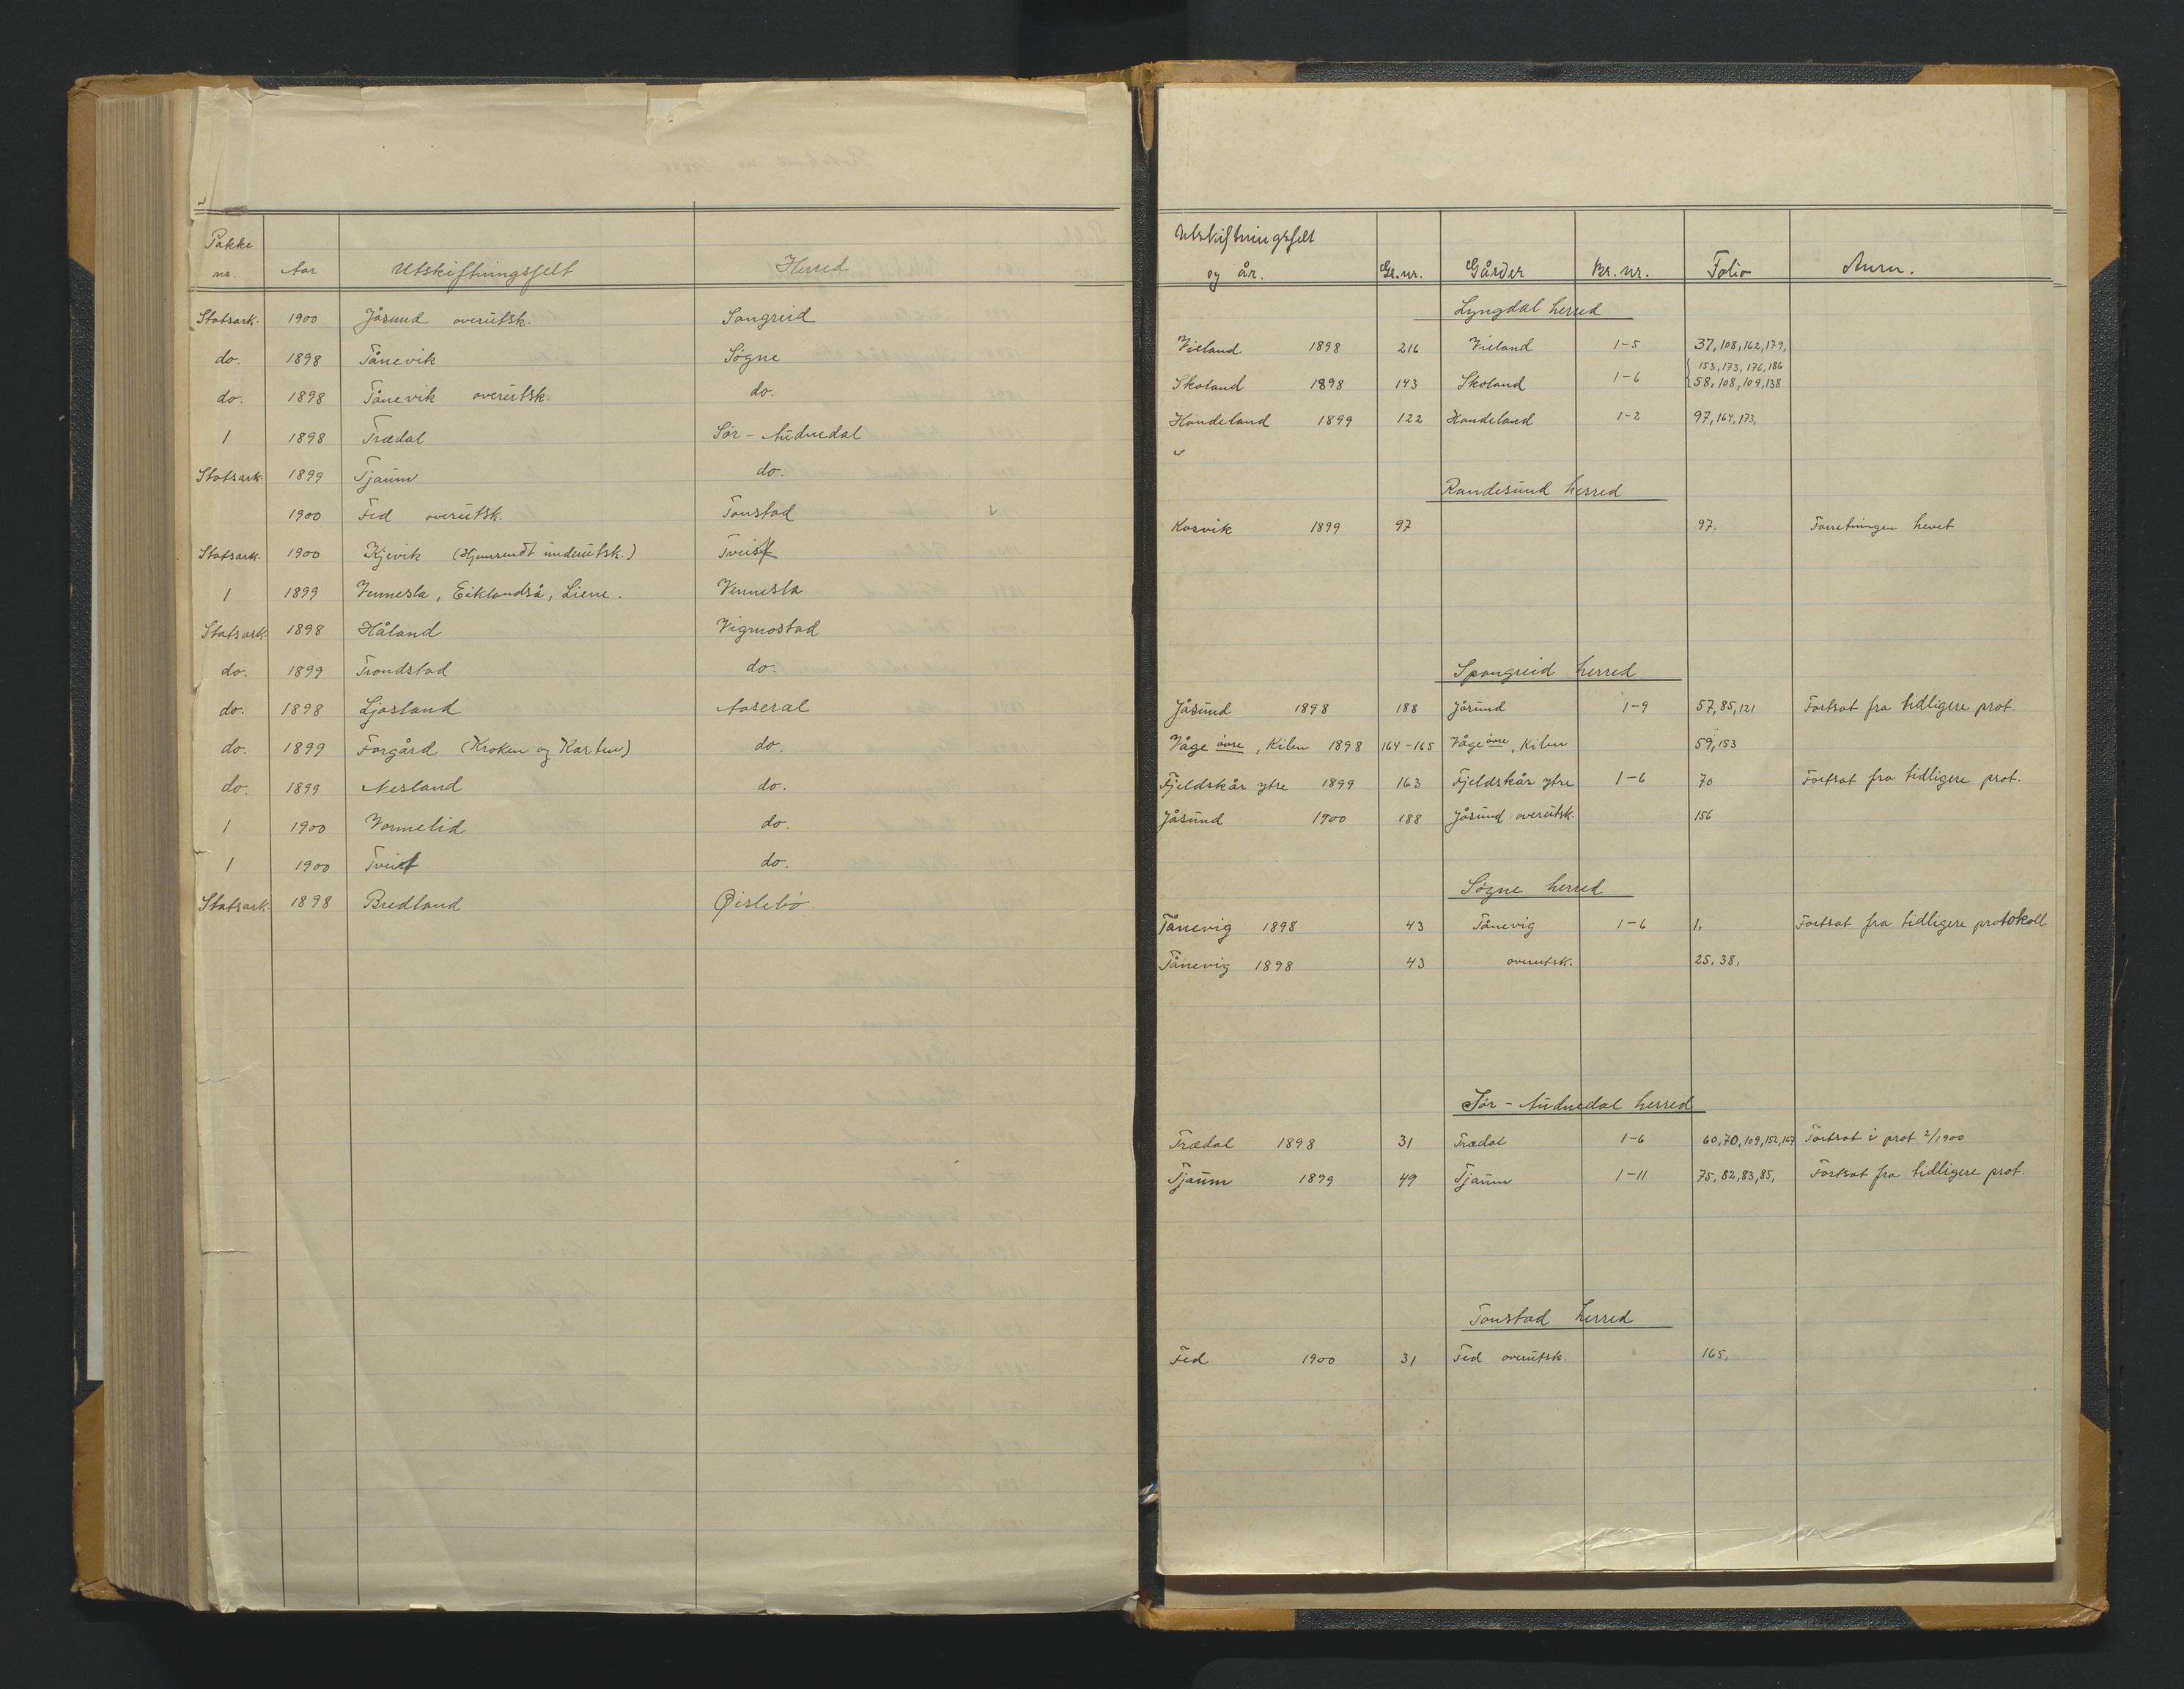 Pakke
nr. Aar Utskiftningsfelt Herred
Statsark. 1900 Jåsund overutsk. Sangreid
do. 1898 Tånevik Søgne
do. 1898 Tånevik overutsk. do.
1 1898 Trædal Sør-Audnedal
Statsark. 1899 Tjaum do.
1900 Fed overutsk. Tonstad
Statsark. 1900 Kjevik underutsk.) Tveit
1 1899 Vennesla, Eiklandså, Liene. Vennesla
Statsark. 1898 Håland Vigmostad
do. 1899 Trondstad do.
do. 1898 Ljosland Aaseral
do. 1899 Forgård (Kroken og Karten) do.
do. 1899 Nesland do.
1 1900 Vormelid do.
1 1900 Tveit do.
Statsark. 1898 Bredland Øislebø.
Utskiftningsfelt
og år. Gr.nr. Gårder Br.nr. Folio Anm.
Lyngdal herred
Vieland 1898 216 Vieland 1-5 37, 108, 162, 179,
153, 173, 176, 186
Skoland 1898 143 Skoland 1-6 58, 108, 109, 138
Handeland 1899 122 Handeland 1-2 97, 164, 173,
Randesund herred
Korsvik 1899 97 97. Forretningen hevet
Spangreid herred
Jåsund 1898 188 Jåsund 1-9 57, 85, 121 Fortsat fra tidligere prot.
Våge øvre, Kilen 1898 164-165 Våge øvre, Kilen 59, 153
Fjeldskår ytre 1899 163 Fjeldskår ytre 1-6 70 Fortsat fra tidligere prot.
Jåsund 1900 188 Jåsund overutsk. 156
Søgne herred
Tånevig 1898 43 Tånevig 1-6 1. Fortsat fra tidligere protokoll
Tånevig 1898 43 overutsk. 25, 38,
Sør-Audnedal herred
Trædal 1898 31 Trædal 1-6 60, 70, 109, 152, 167 Fortsat i prot 2/1900
Tjaum 1899 49 Tjaum 1-11 75, 82, 83, 85, Fortsat fra tidligere prot.
Tonstad herred
Fed 1900 31 Fed overutsk. 165,